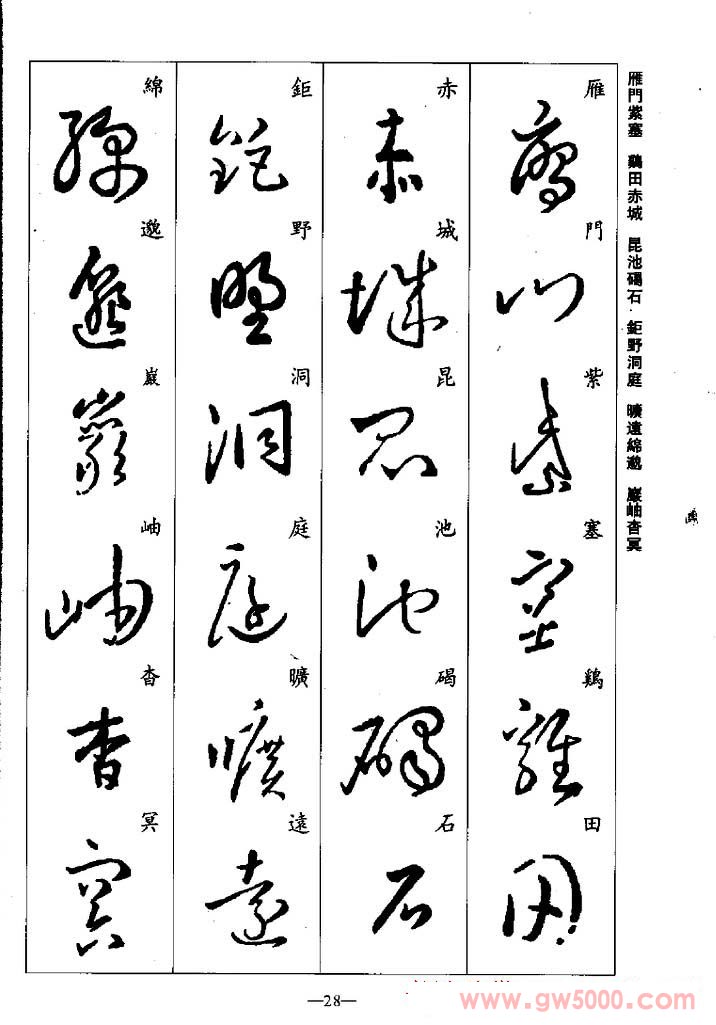 雁門紫塞 鷄田赤城 昆池碣石 鉅野洞庭 曠遠綿邈 巖岫杳冥
雁門紫塞鷄田
赤城昆池碣石
鉅野洞庭曠遠
綿邈巖岫杳冥
—28—
www.gw5000.com